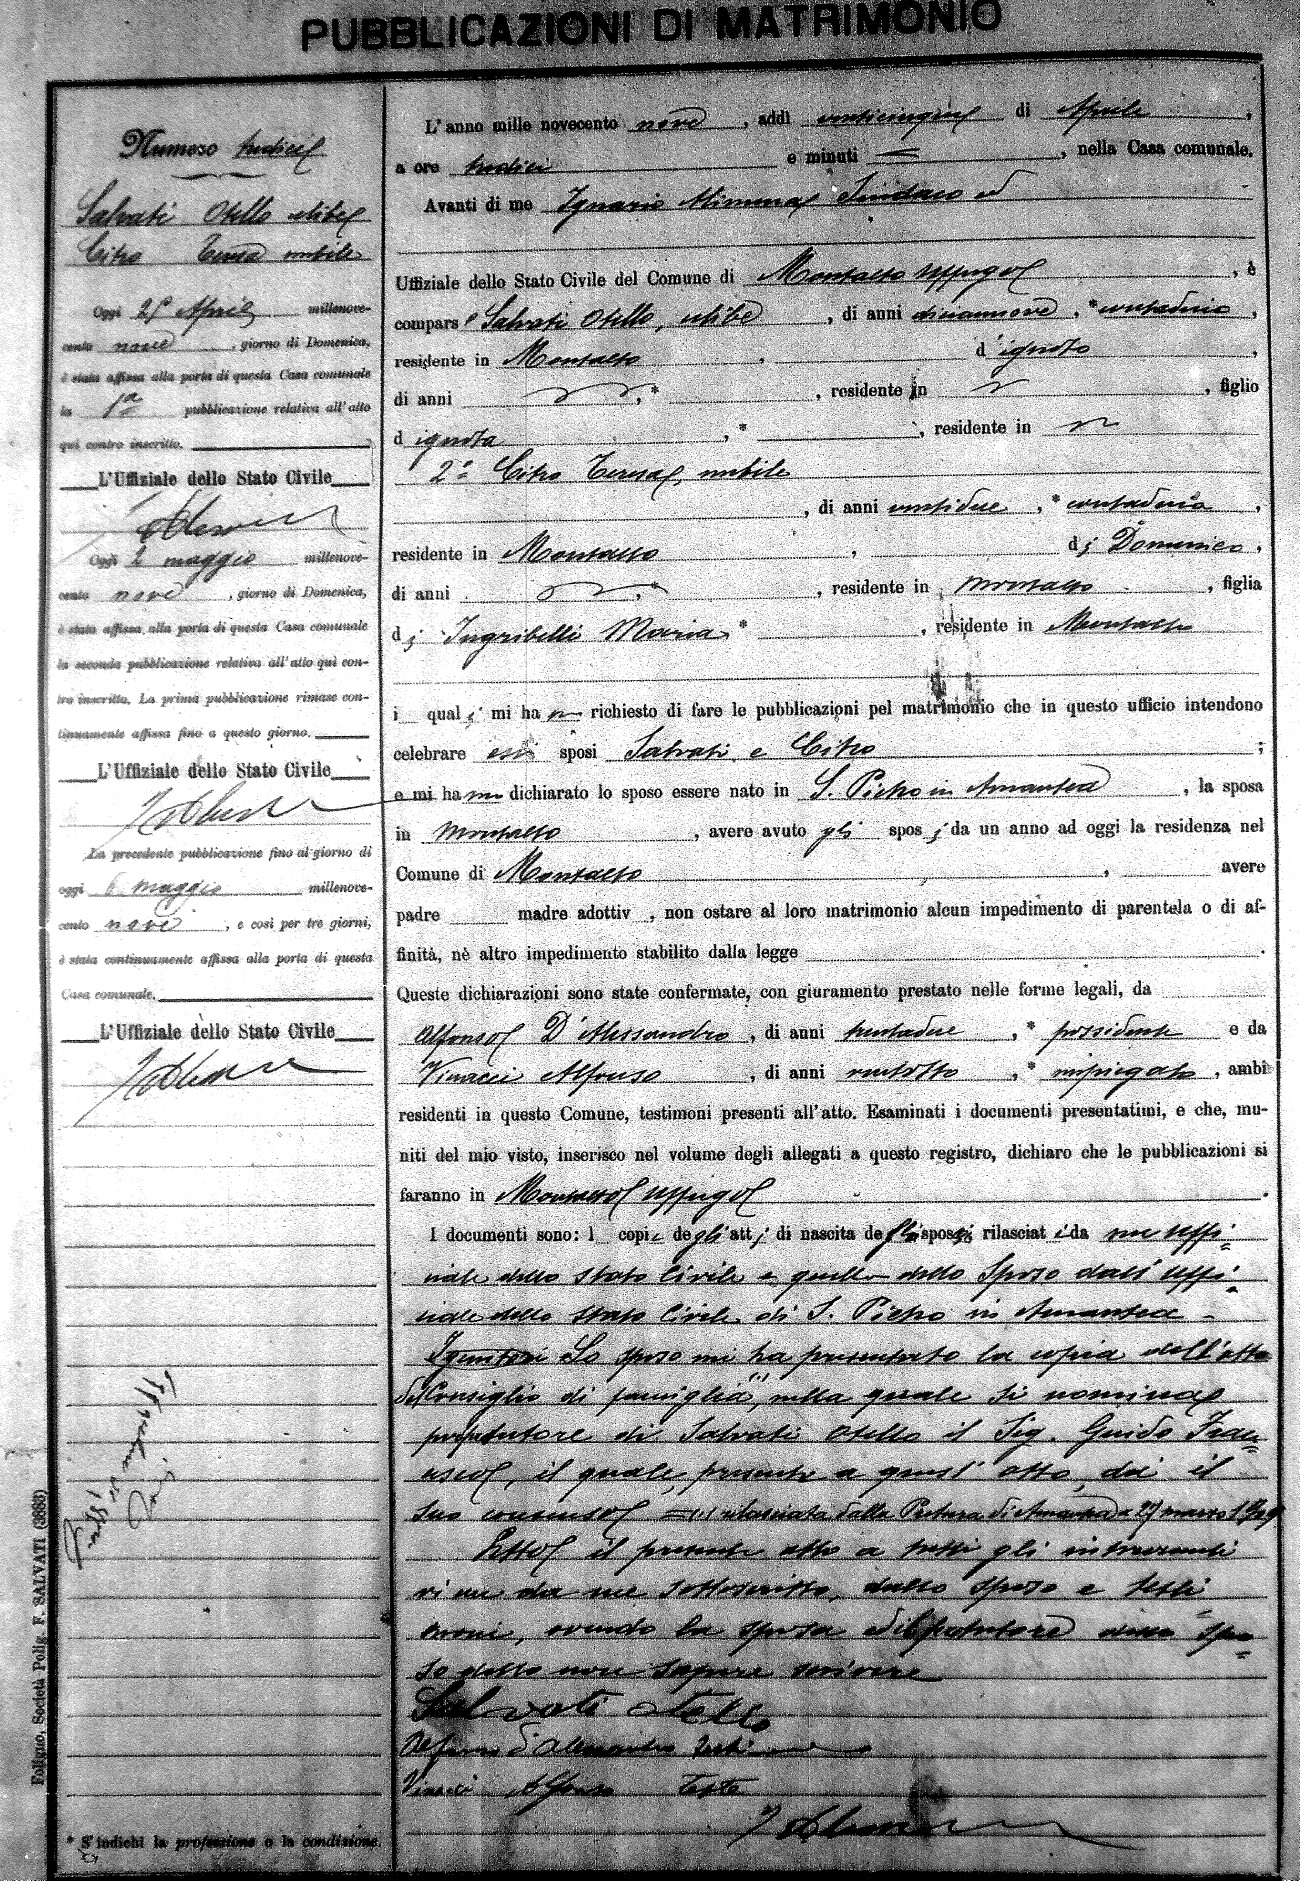 PUBBLICAZIONI DI MATRIMONIO
Numero undici
Salvati Otello celibe
Citro Teresa nubile
Oggi 25 Aprile millenove-
cento nove, giorno di Domenica,
è stata affissa alla porta di questa Casa comunale
la 1a pubblicazione relativa all'atto
qui contro inscritto.
L'Uffiziale dello Stato Civile
Oggi 2 maggio millenove-
cento nove, giorno di Domenica,
è stata affissa alla porta di questa Casa comunale
la seconda pubblicazione relativa all'atto quì con-
tro inscritto. La prima pubblicazione rimase con-
tinuamente affissa fino a questo giorno.
L'Uffiziale dello Stato Civile
La precedente pubblicazione fino al giorno di
oggi 6 maggio millenove-
cento nove, e così per tre giorni,
è stata continuamente affissa alla porta di questa
Casa comunale.
L'Uffiziale dello Stato Civile
* S'indichi la professione o la condizione.
Foligno, Società Polig. F. SALVATI (3868)
L'anno mille novecento nove, addì venticinque di Aprile,
a ore undici e minuti =, nella Casa comunale.
Avanti di me Ignazio Sindaco ed
Uffiziale dello Stato Civile del Comune di Montalto Uffugo, è
compars o Salvati Otello, celibe, di anni diciannove, * contadino,
residente in Montalto, d'ignoto,
di anni , * , residente in , figlio
d ignota , * , residente in
2° Citro Teresa, nubile
, di anni ventidue, * contadina,
residente in Montalto, di Domenico,
di anni , * , residente in Montalto, figlia
di Ingribelli Maria * , residente in Montalto
i qual i mi hanno richiesto di fare le pubblicazioni pel matrimonio che in questo ufficio intendono
celebrare essi sposi Salvati e Citro ;
e mi hanno dichiarato lo sposo essere nato in S. Pietro in Amantea, la sposa
in Montalto, avere avuto gli spos i da un anno ad oggi la residenza nel
Comune di Montalto , , avere
padre madre adottiv , non ostare al loro matrimonio alcun impedimento di parentela o di af-
finità, nè altro impedimento stabilito dalla legge .
Queste dichiarazioni sono state confermate, con giuramento prestato nelle forme legali, da
Alfonso D'Alessandro, di anni trentadue, * possidente e da
Vinacci Alfonso, di anni ventotto, * impiegato, ambi
residenti in questo Comune, testimoni presenti all'atto. Esaminati i documenti presentatimi, e che, mu-
niti del mio visto, inserisco nel volume degli allegati a questo registro, dichiaro che le pubblicazioni si
faranno in Montalto Uffugo .
I documenti sono: l copie degli atti di nascita degli sposi rilasciat i da me Uffi-
ziale dello Stato Civile e quello dello Sposo dall'Uffi-
ziale dello Stato Civile di S. Pietro in Amantea -
Lo sposo mi ha presentato la copia dell'atto
del Consiglio di famiglia (1), nella quale si nomina
protutore di Salvati Otello il Sig. Guido
, il quale, presente a quest'atto, dà il
suo consenso = (1) rilasciata dalla Pretura di Amantea a 27 marzo 1909
Letto il presente atto a tutti gli intervenuti
vi è da me sottoscritto, dallo sposo e testi-
moni, avendo la sposa ed il protutore dello spo-
so detto non sapere scrivere
Salvati Otello
Alfonso d'Alessandro teste
Vinacci Alfonso teste